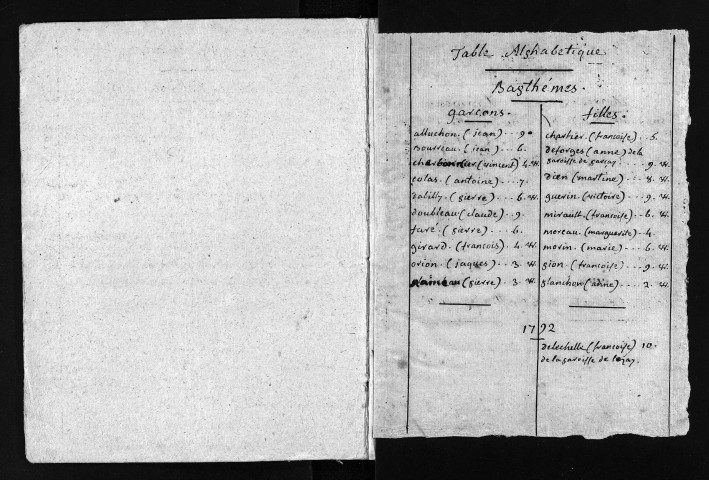 Table Alphabetique
Bapthémes.
garçons.
alluchon (jean) .. 9.
Bourreau (jean) .. 6.
charbonnier (vincent) 4. v.
colas (antoine) ... 7.
dabilly (pierre) ... 6. v.
doubleau (claude) .. 9.
faré (pierre) ... 6.
girard (francois) 4. v.
orion (jaques) ... 3. v.
plaineau (pierre) .. 3. v.
filles.
chartier (francoise) .. 5.
deforges (anne) de la
paroisse de parçay ... 9. v.
dien (martine) ... 8. v.
guerin (victoire) .. 9. v.
mirault (francoise) .. 6. v.
moreau (marguerite) 4.
morin (marie) ... 6. v.
pion (francoise) ... 9. v.
planchon (anne) ... 2. v.
1792
delechelle (francoise) 10.
de la paroisse de lezay.